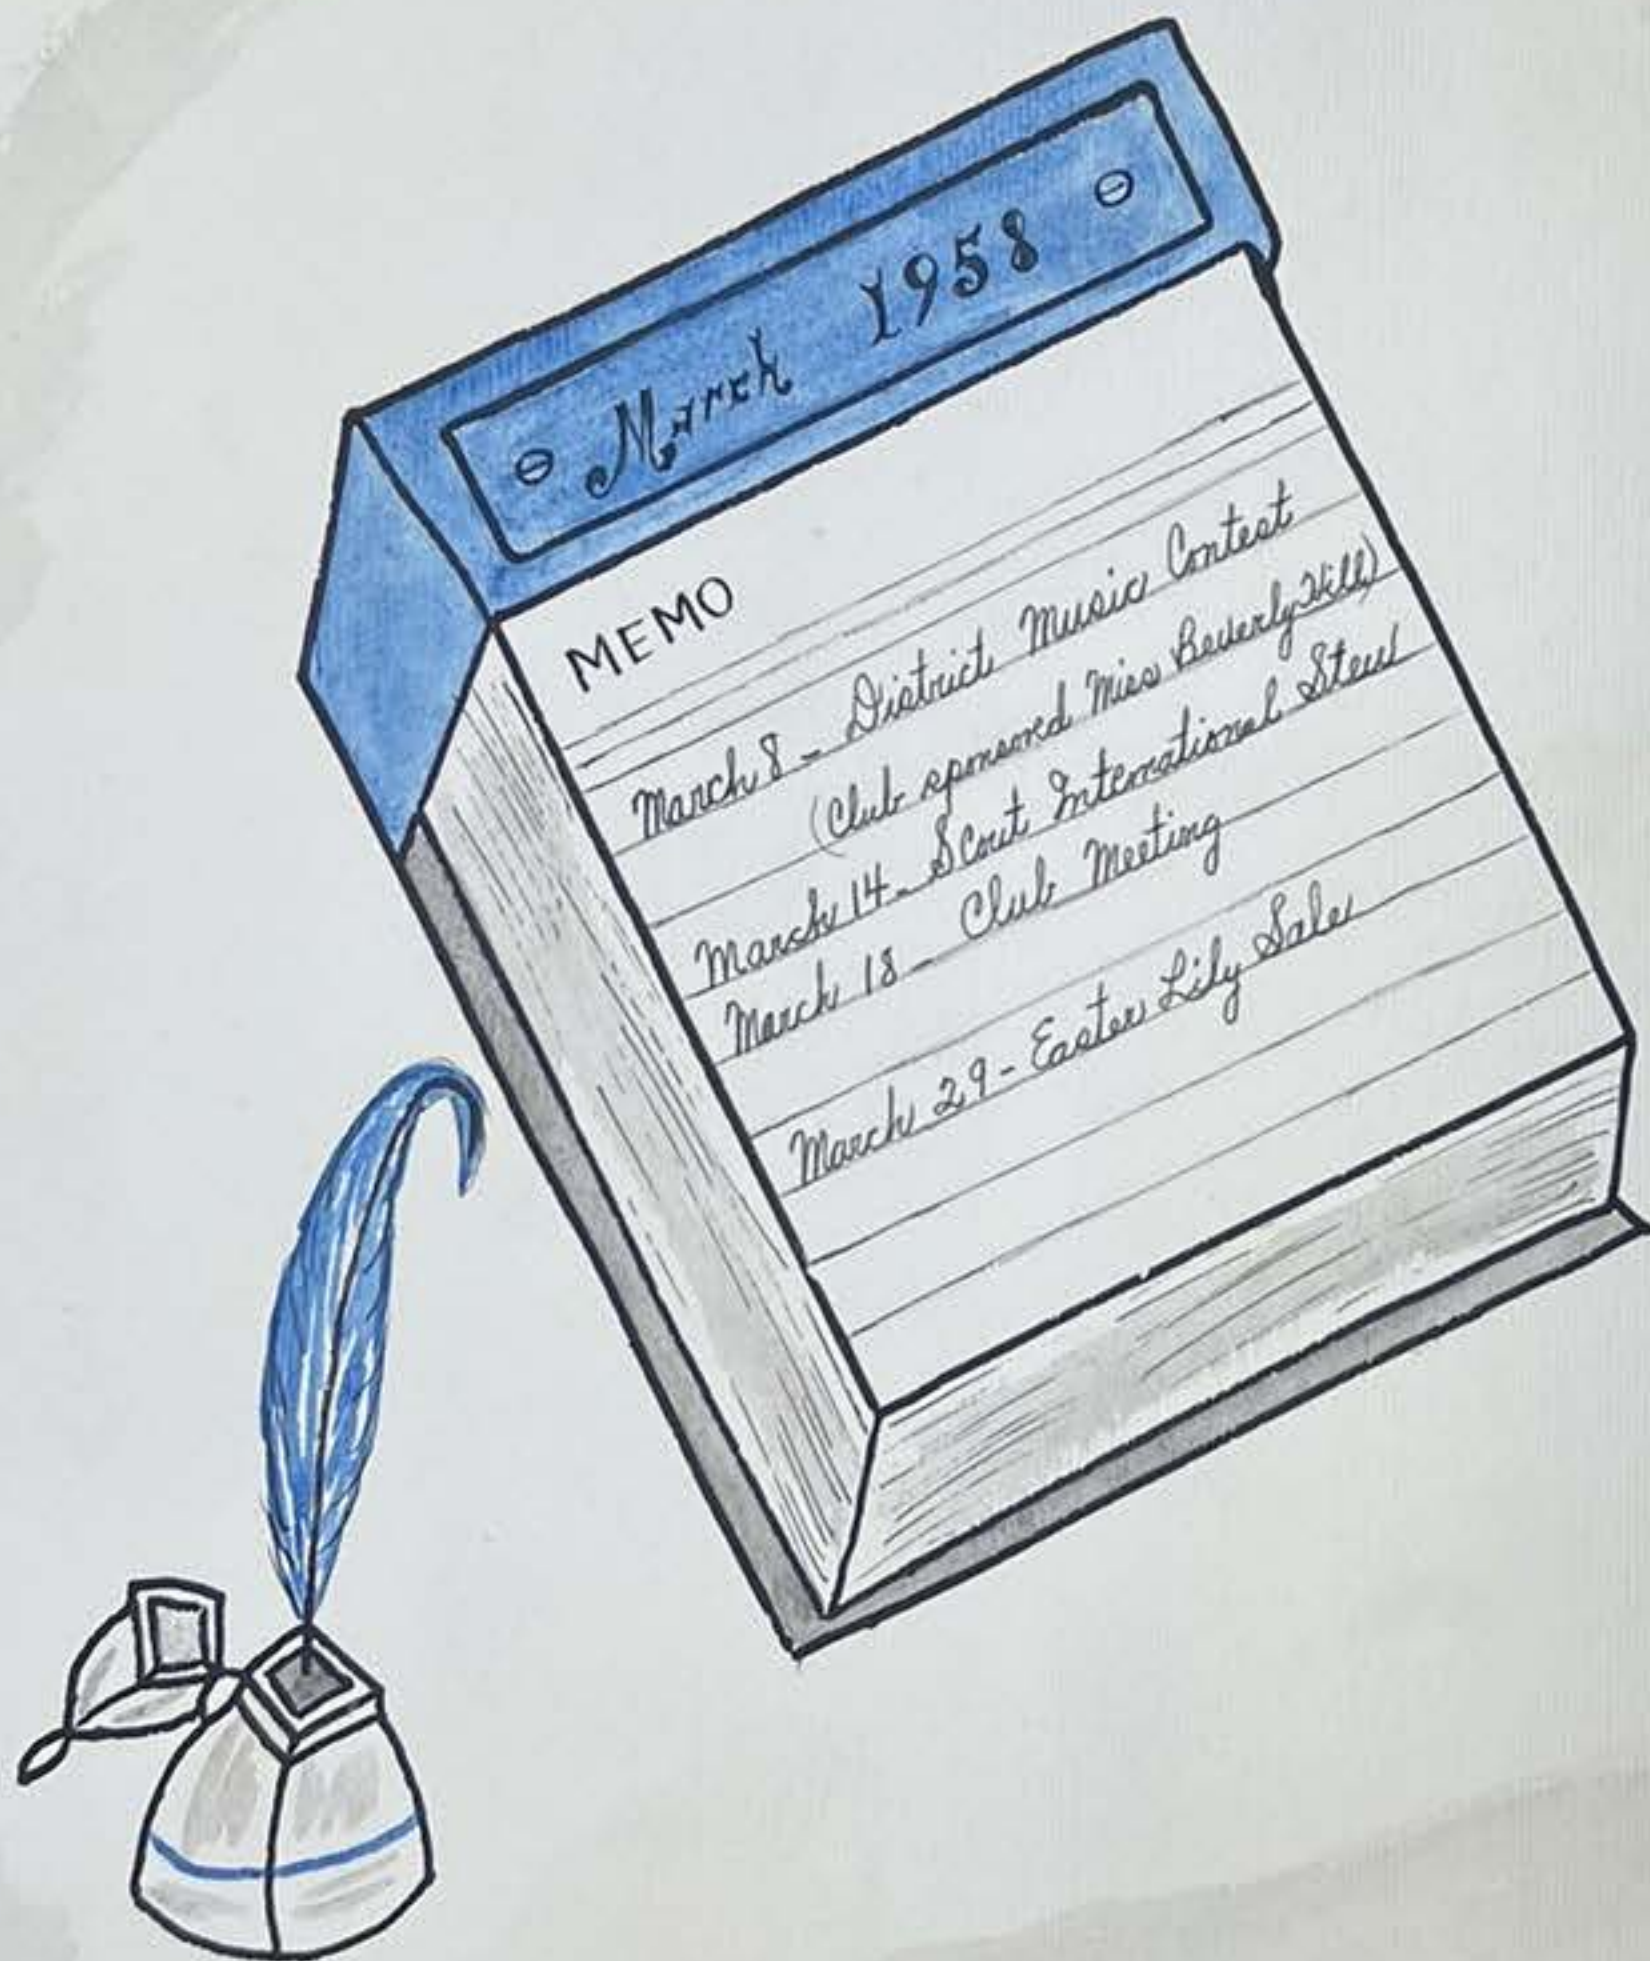 March 1958
MEMO
March 8 - District Music Contest
(Club sponsored Miss Beverly Hill)
March 14 - Scout International Stew
March 18 - Club Meeting
March 29 - Easter Lily Sale